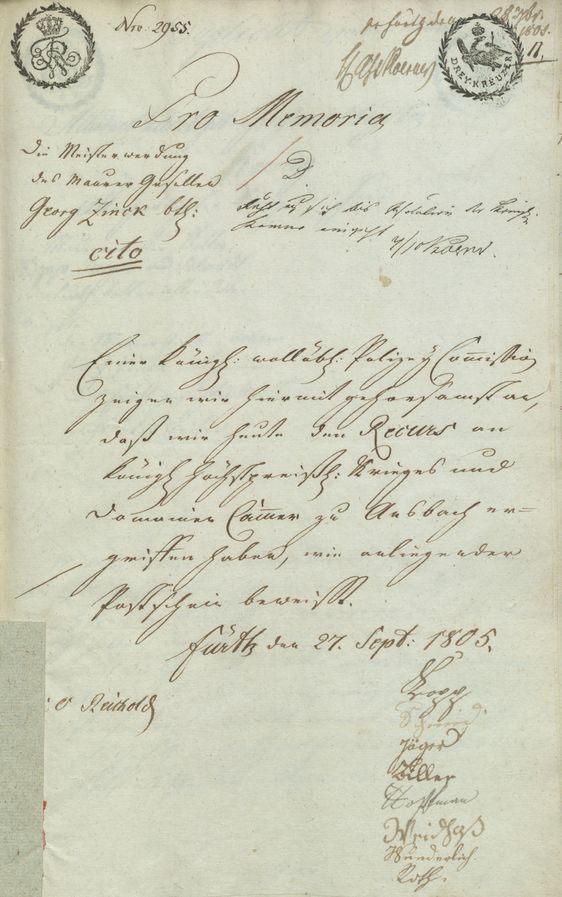 Nro. 2955.
28 7br.
1805.
11.
DREY-KREUZER
Pro Memoria
Die Meisterwerdung
des Maurer Gesellen
Georg Zinck btl:
cito
Einer Königl: wollöbl: Polizey Commission
zeigen wir hiermit gehorsamst an,
daß wir heute den Recurs an
Königl höchstpreißl: Krieges und
Domainen Cam̅er zu Ansbach er=
griffen haben, wie anliegender
Postschein beweißt.
Fürth den 27. Sept: 1805.
Reuhold
Kopp
Schmid
Jäger
Biller
Hoffman
Weidhaß
Wunderlich.
Roth.